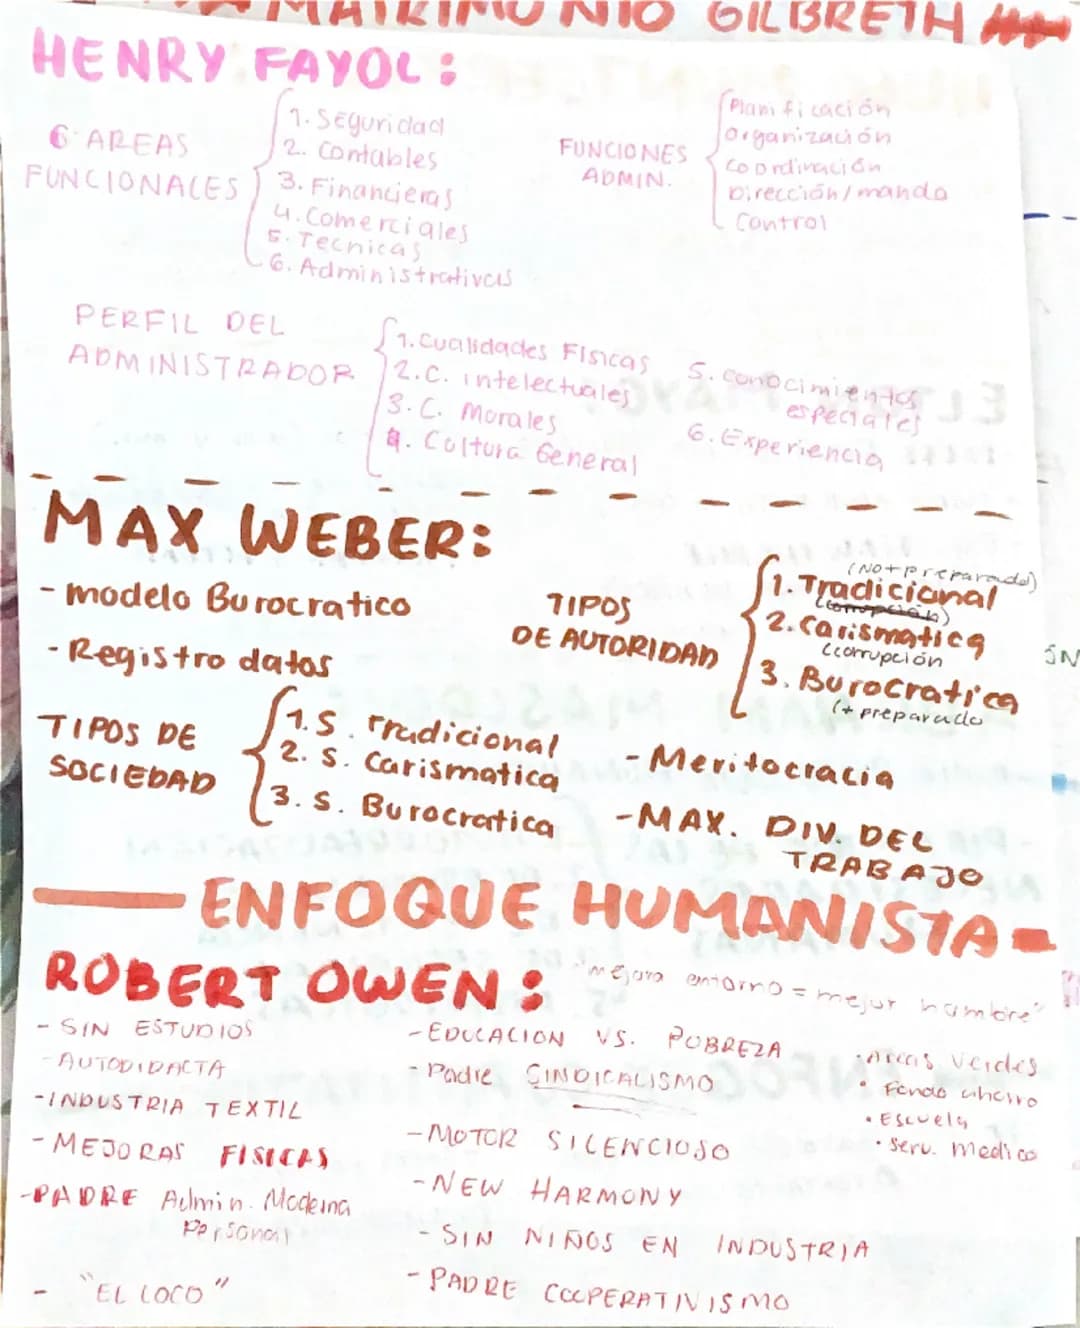 MATRIMONIO GILBRETH
HENRY FAYOL:
6 AREAS
FUNCIONALES
1. Seguridad
2. Contables
3. Financieras
4. Comerciales
5. Tecnicas
6. Administrativas
FUNCIONES
ADMIN.
Planificación
Organización
Coordinación
Dirección/mando
Control
PERFIL DEL
ADMINISTRADOR
1. Cualidades Físicas
2. C. intelectuales
3. C. Morales
4. Cultura General
5. Conocimientos
especiales
6. Experiencia
MAX WEBER:
- modelo Burocratico
- Registro datos
TIPOS
DE AUTORIDAD
(No + preparado)
1. Tradicional
(corrupción)
2. Carismatica
(corrupción
3. Burocratica
(+ preparado
TIPOS DE
SOCIEDAD
1. S. Tradicional
2. S. Carismatica
3. S. Burocratica
- Meritocracia
- MAX. DIV. DEL
TRABAJO
ENFOQUE HUMANISTA
ROBERT OWEN:
"mejora entorno = mejor hombre"
- SIN ESTUDIOS
- AUTODIDACTA
- INDUSTRIA TEXTIL
- MEJORAS FISICAS
- PADRE Admin. Moderna
Personal
- "EL LOCO"
- EDUCACION VS. POBREZA
- Padre SINDICALISMO
- MOTOR SILENCIOSO
- NEW HARMONY
- SIN NIÑOS EN INDUSTRIA
- PADRE COOPERATIVISMO
• Areas verdes
• Fondo ahorro
• Escuela
• Serv. Medico